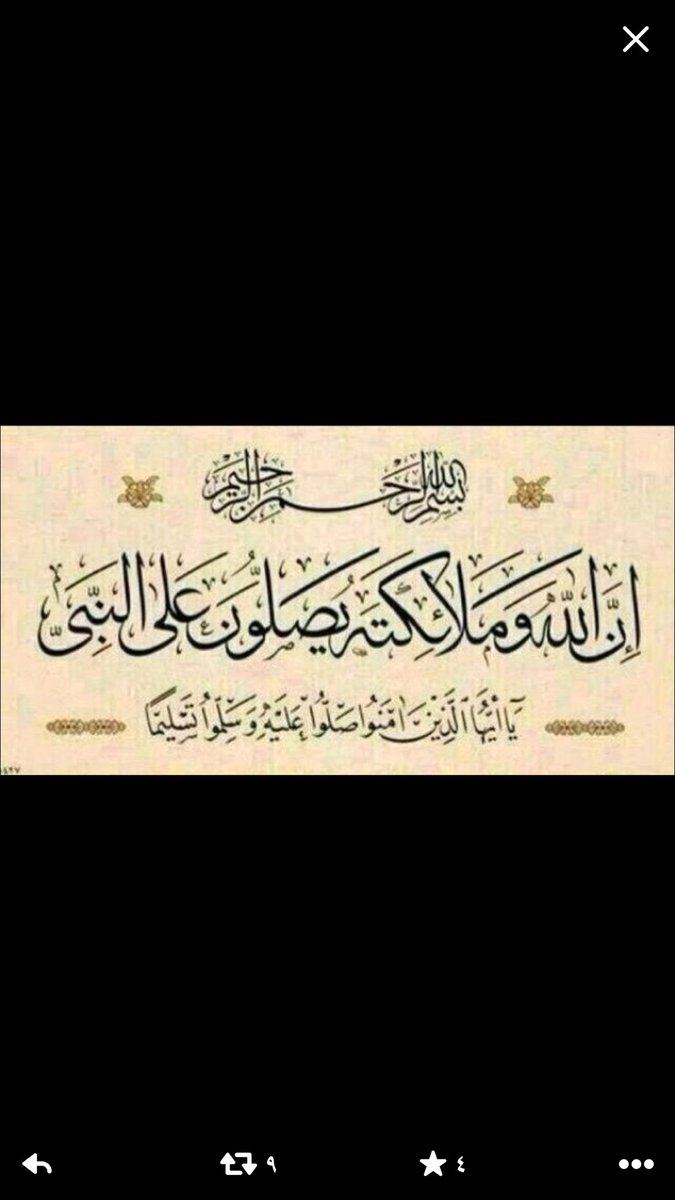 بسم الله الرحمن الرحيم
إِنَّ اللهَ وَمَلَائِكَتَهُ يُصَلُّونَ عَلَى النَّبِيِّ
يَا أَيُّهَا الَّذِينَ اٰمَنُوا صَلُّوا عَلَيْهِ وَسَلِّمُوا تَسْلِيمًا
١٤٢٧
٩
٤